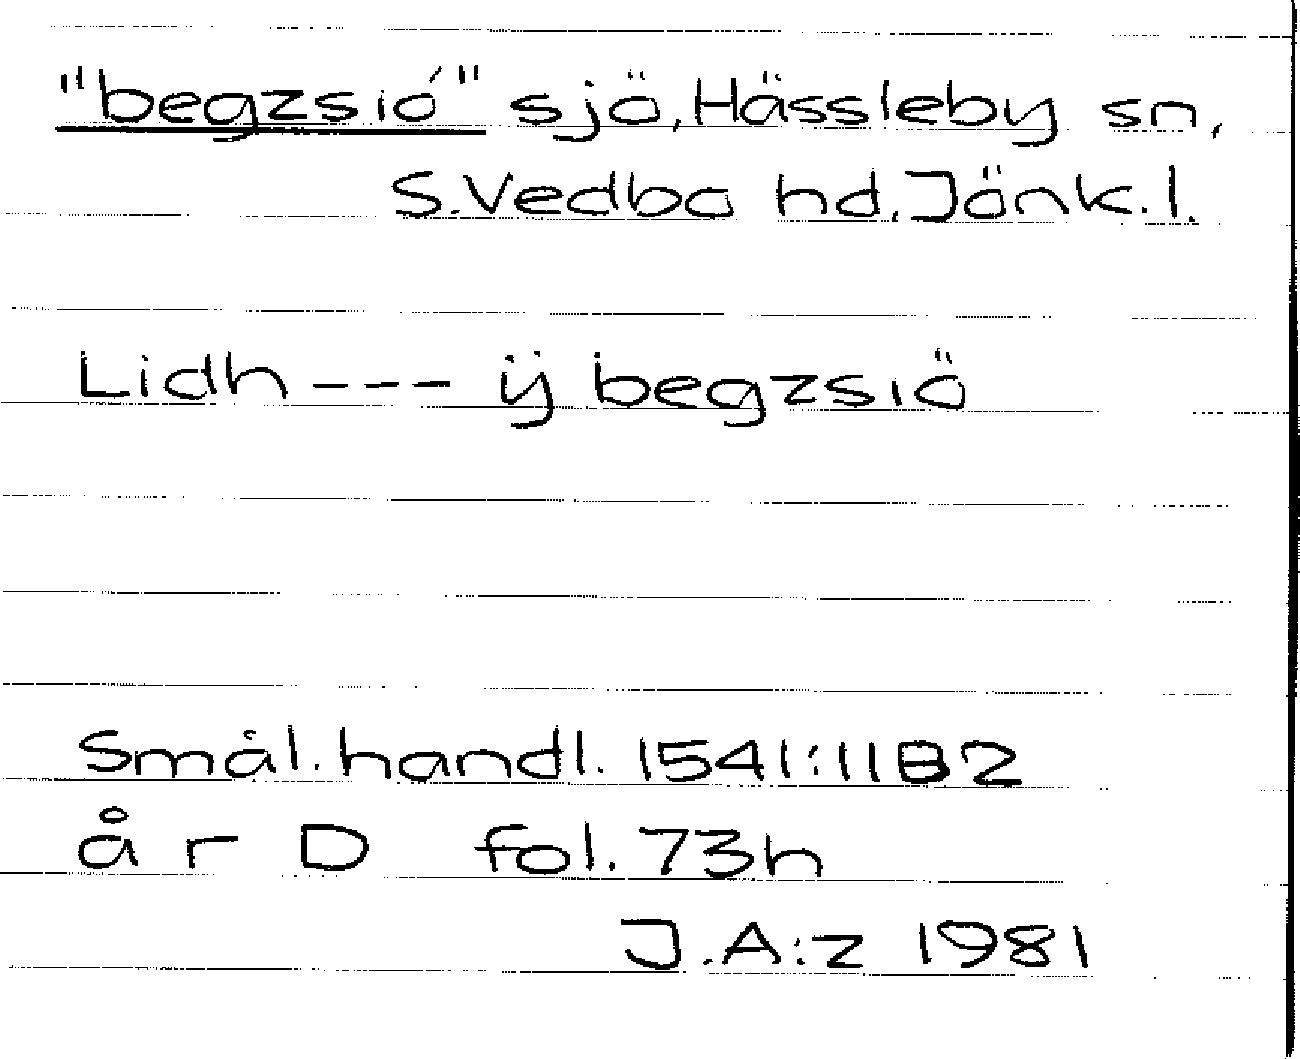 "begzsió" sjö, Hässleby sn,
S. Vedbo hd. Jönk. l.
Lidh --- ÿ begzsiö
Smål. handl. 1541:11B2
år D fol. 73h
J.A:z 1981